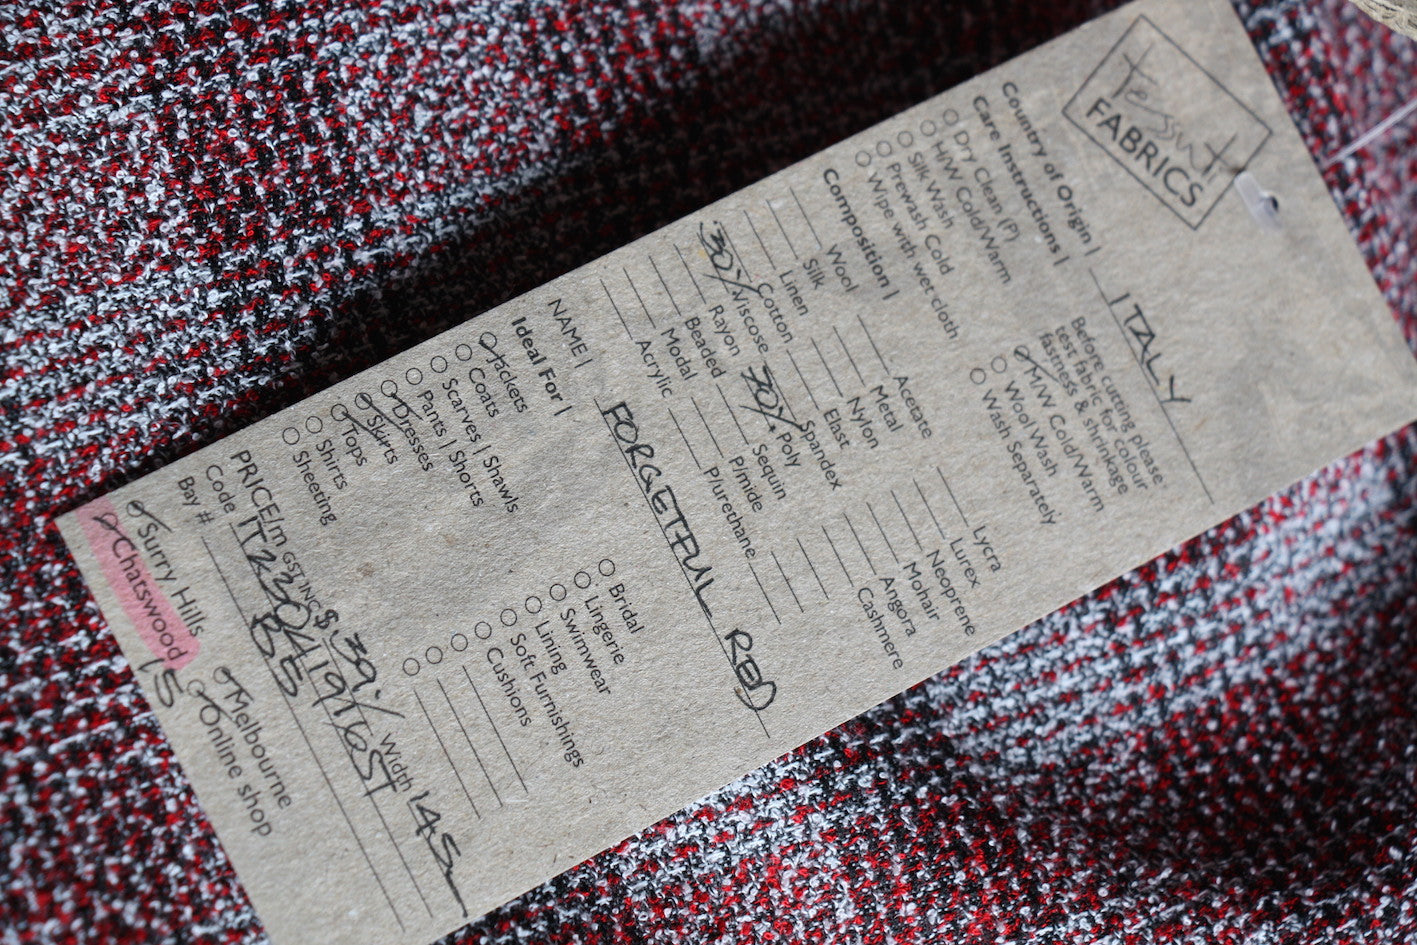 Tessuti
FABRICS
Country of Origin | ITALY
Care Instructions |
Before cutting please
test fabric for colour
fastness & shrinkage
Dry Clean (P)
H/W Cold/Warm
Silk Wash
Prewash Cold
Wipe with wet cloth
M/W Cold/Warm
Wool Wash
Wash Separately
Composition |
Wool Acetate Lycra
Silk Metal Lurex
Linen Nylon Neoprene
Cotton Elast Mohair
30% Viscose Spandex Angora
Rayon 70% Poly Cashmere
Beaded Sequin
Modal P/mide
Acrylic P/urethane
NAME | FORGETFUL RED
Ideal For |
Jackets
Coats
Scarves | Shawls
Pants | Shorts
Dresses
Skirts
Tops
Shirts
Sheeting
Bridal
Lingerie
Swimwear
Lining
Soft Furnishings
Cushions
PRICE/m GST INC $ 39 Width 145
Code
Bay #
Surry Hills Melbourne
Chatswood 15 Online shop